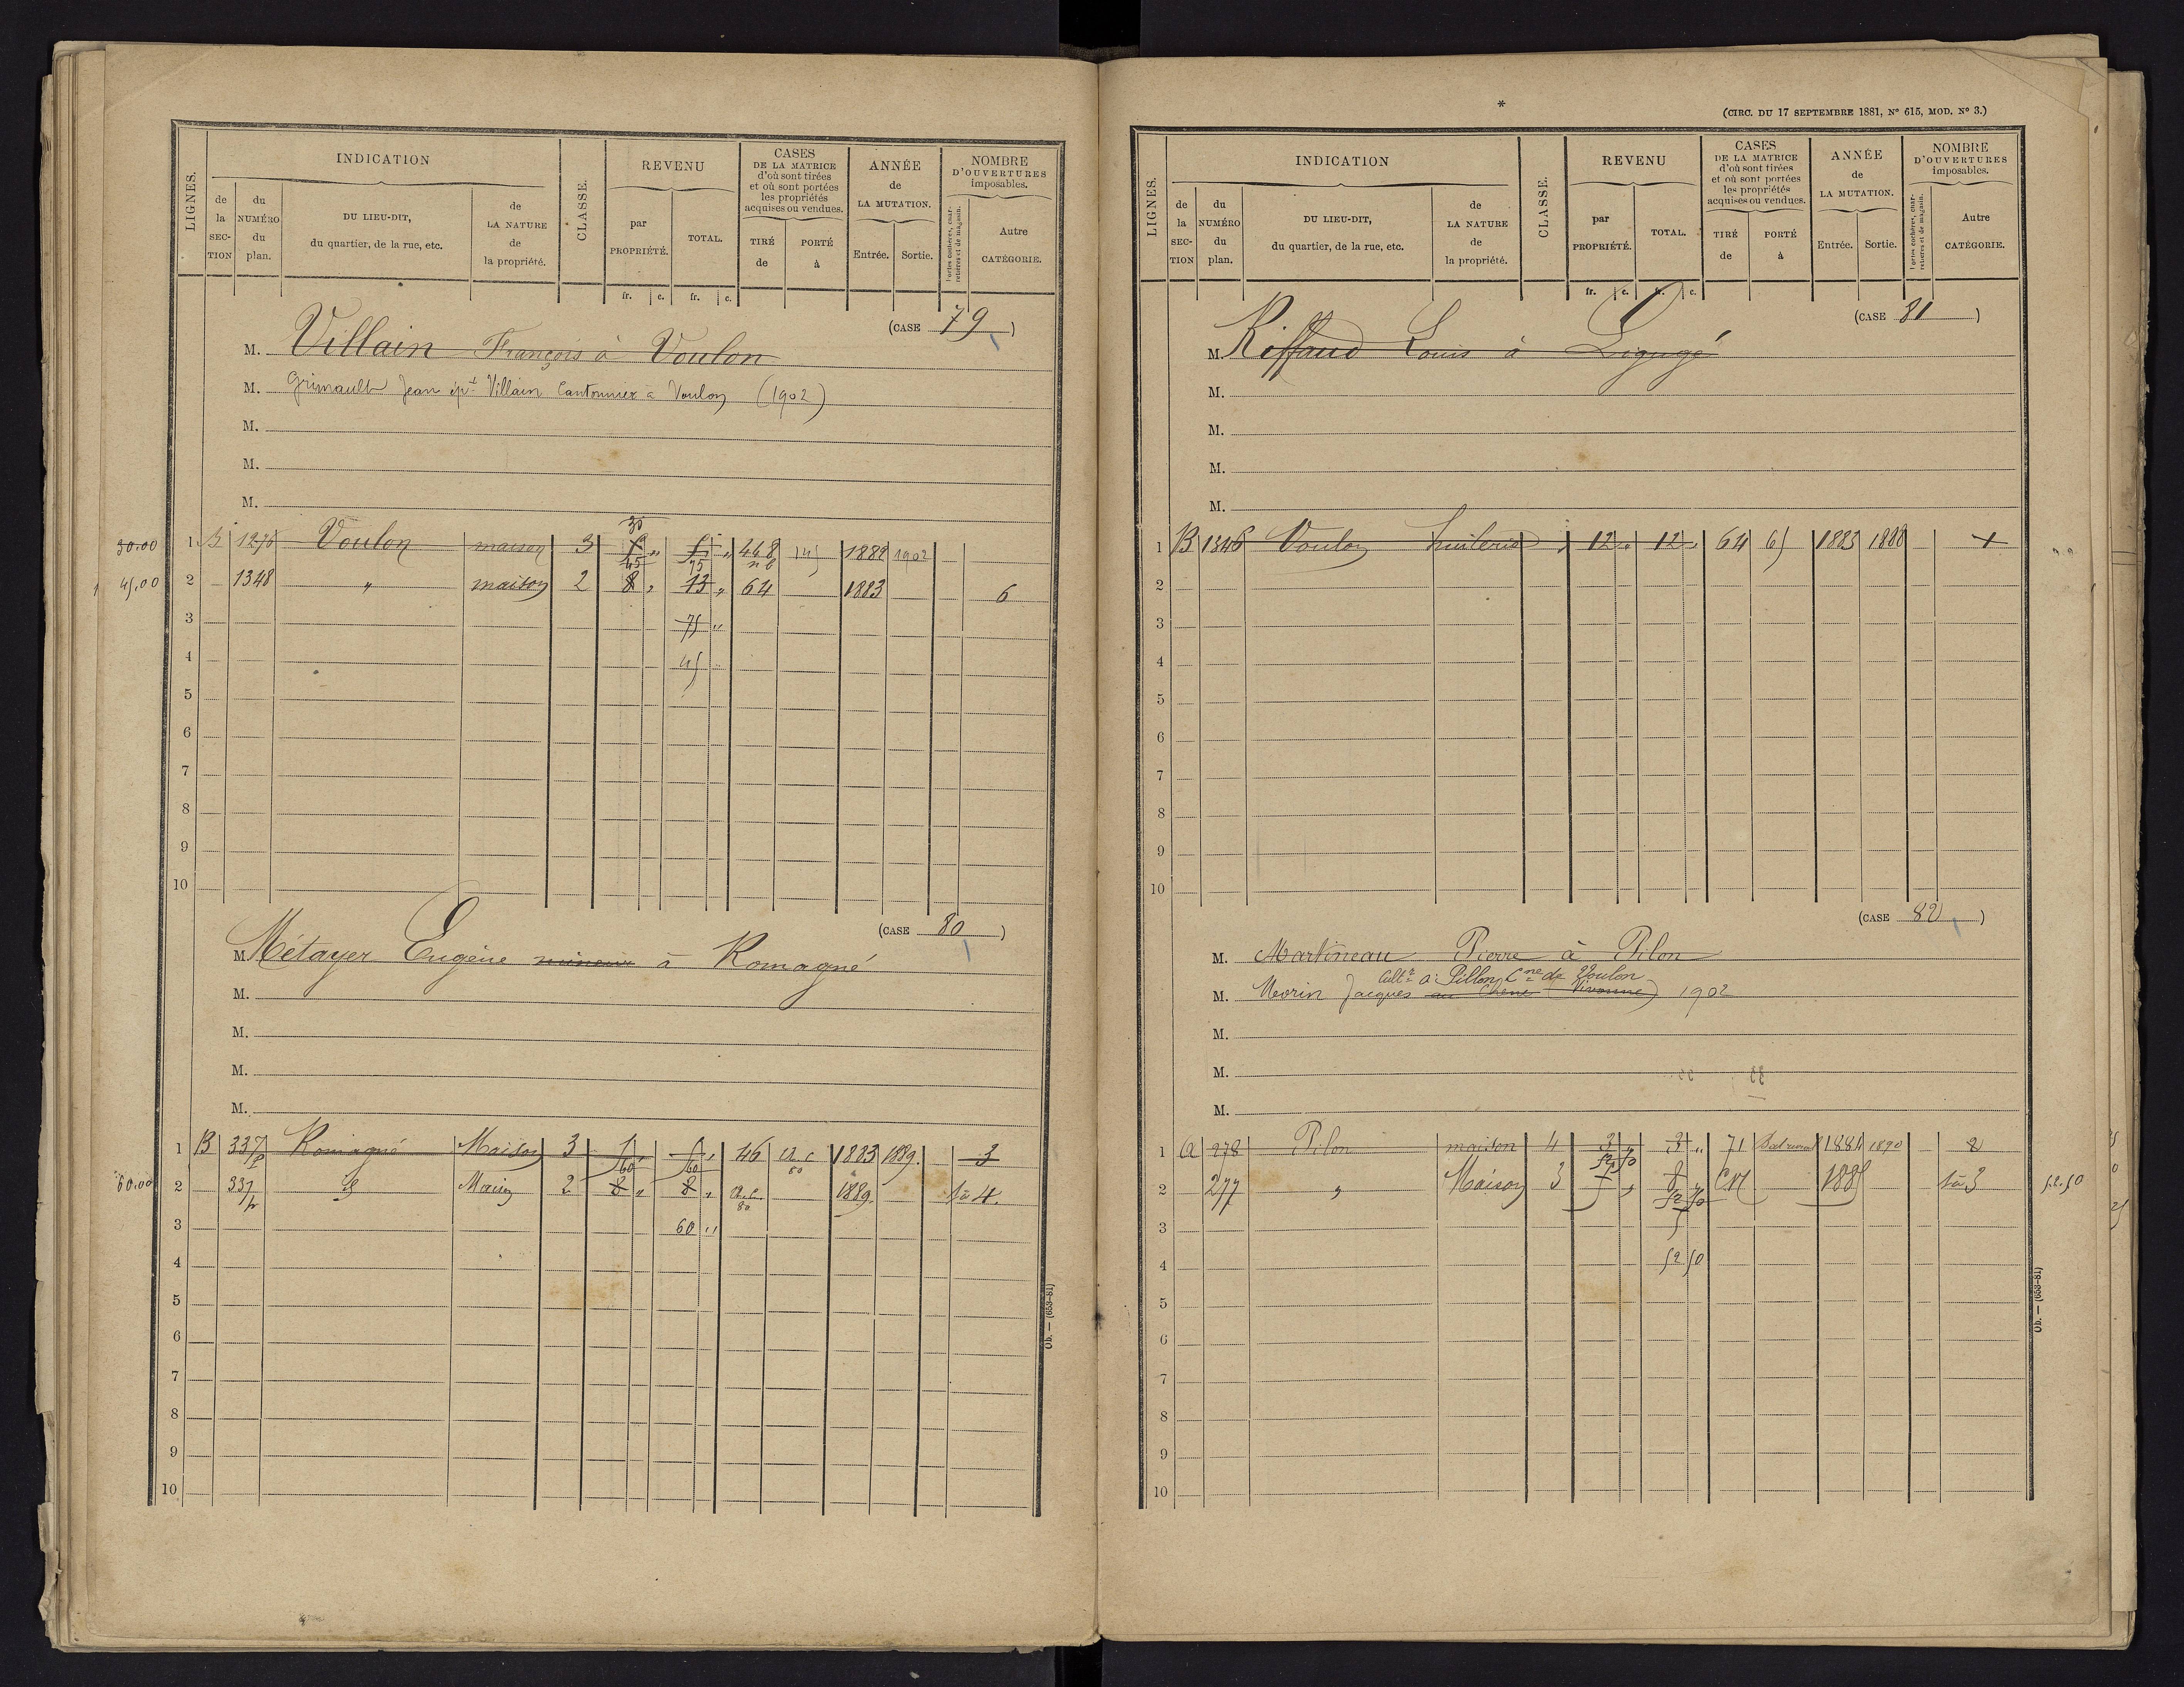 LIGNES.
INDICATION
de la SECTION
du NUMÉRO du plan.
DU LIEU-DIT, du quartier, de la rue, etc.
de LA NATURE de la propriété.
CLASSE.
REVENU
par PROPRIÉTÉ.
TOTAL.
CASES DE LA MATRICE d'où sont tirées et où sont portées les propriétés acquises ou vendues.
TIRÉ de
PORTÉ à
ANNÉE de LA MUTATION.
Entrée.
Sortie.
NOMBRE D'OUVERTURES imposables.
Portes cochères, charretières et de magasin.
Autre CATÉGORIE.
fr. c. fr. c.
(CASE 79)
M. Villain François à Voulon
M. Grimault Jean ép.t Villain Cantonnier à Voulon (1902)
M.
M.
M.
30
30.00 1 B 1276 Voulon maison 3 5 " 5 " 448 145 1882 1902
45 75 n c
45.00 2 1348 " maison 2 8 " 13 " 64 1883 6
3 75 "
4 45 "
5
6
7
8
9
10
(CASE 80)
M. Métayer Eugène mineur à Romagné
M.
M.
M.
M.
1 B 337p Romagné Maison 3 5 " 5 " 46 Ch. C. 80 1883 1889. 3
60 60
60.00 2 337p d Maison 2 8 " 8 " Ch. C. 80 1889. 1 à 4.
3 60 "
4
5
6
7
8
9
10
Ob. — (653-81)
*
(CIRC. DU 17 SEPTEMBRE 1881, N° 615, MOD. N° 3.)
LIGNES.
INDICATION
de la SECTION
du NUMÉRO du plan.
DU LIEU-DIT, du quartier, de la rue, etc.
de LA NATURE de la propriété.
CLASSE.
REVENU
par PROPRIÉTÉ.
TOTAL.
CASES DE LA MATRICE d'où sont tirées et où sont portées les propriétés acquises ou vendues.
TIRÉ de
PORTÉ à
ANNÉE de LA MUTATION.
Entrée.
Sortie.
NOMBRE D'OUVERTURES imposables.
Portes cochères, charretières et de magasin.
Autre CATÉGORIE.
fr. c. fr. c.
(CASE 81)
M. Riffaud Louis à Ligugé
M.
M.
M.
M.
1 B 1346 Voulon huilerie " 12 " 12 " 64 65 1883 1888 1
2
3
4
5
6
7
8
9
10
(CASE 82)
M. Martineau Pierre à Pilon
Cult.r à Pillon C.ne de Voulon
M. Morin Jacques au Chêne (Vivonne) 1902
M.
M.
M.
1 A 278 Pilon maison 4 3 " 3 " 71 1884 1890 2
52 50
2 277 " Maison 3 5 " 8 " C.N 1885 1 à 3 52.50
52 50
3 5
4 52 50
5
6
7
8
9
10
Ob. — (653-81)